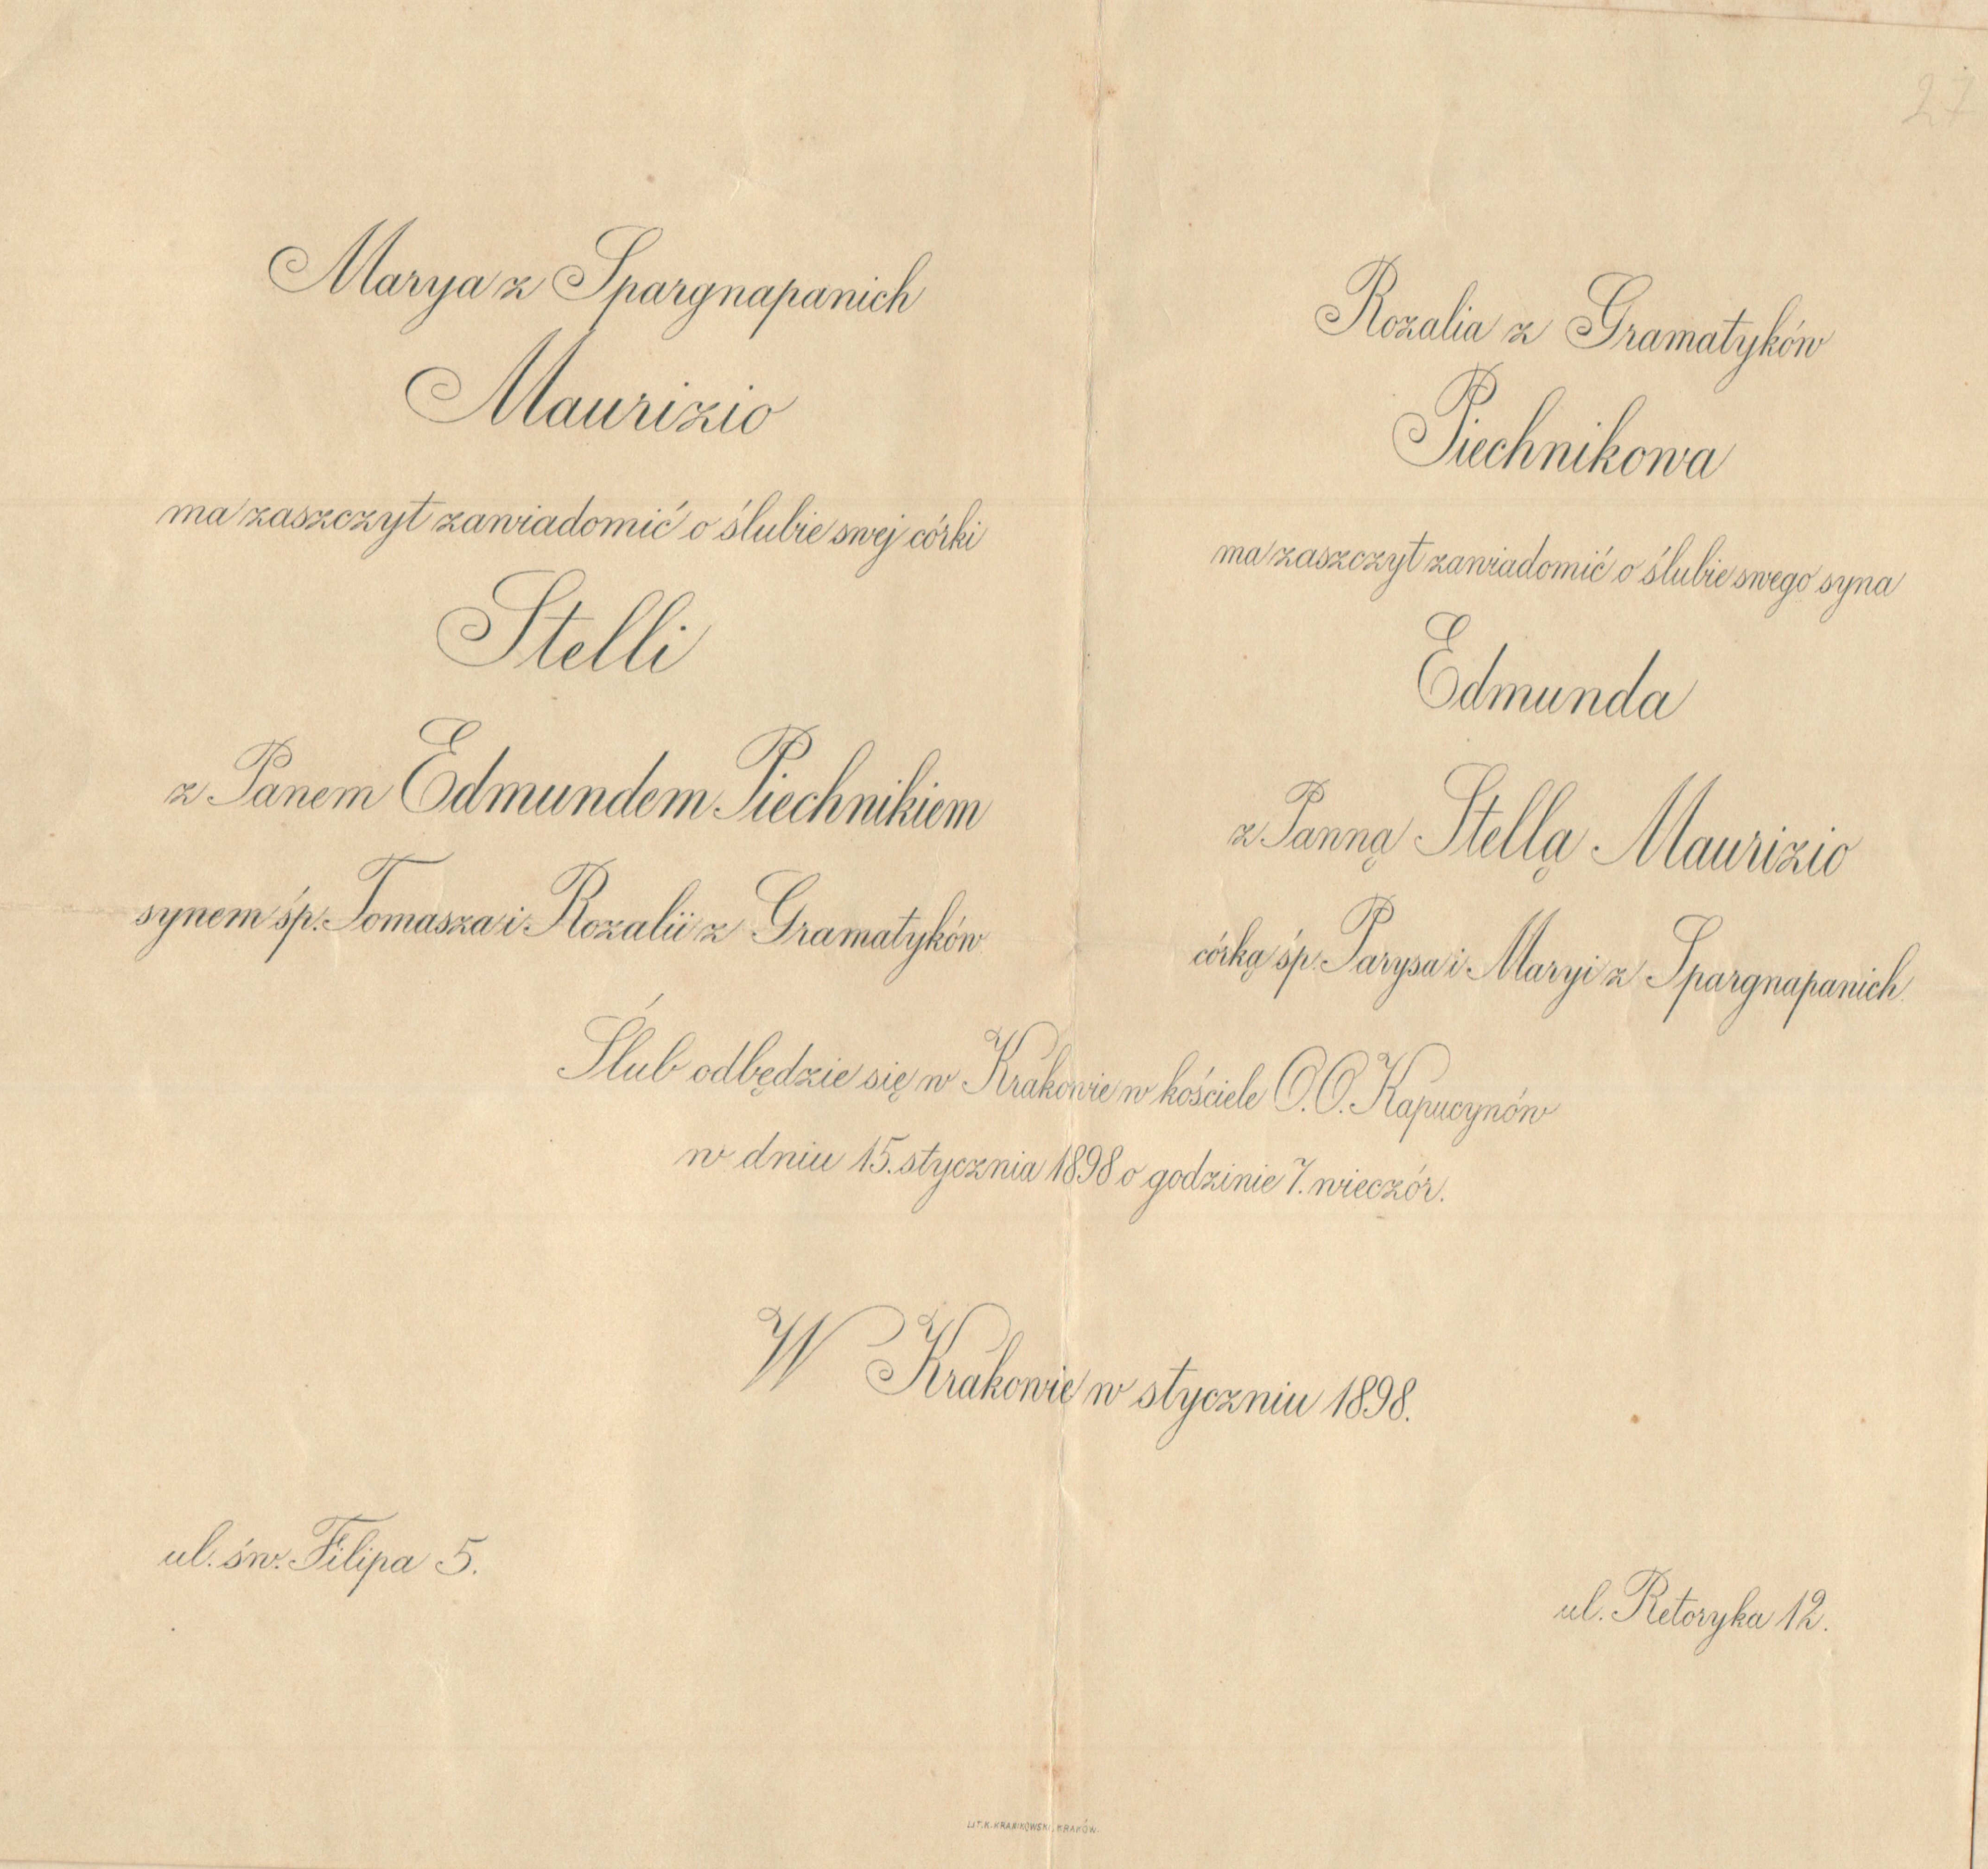 27
Marya z Spargnapanich
Maurizio
ma zaszczyt zawiadomić o ślubie swej córki
Stelli
z Panem Edmundem Piechnikiem
synem śp. Tomasza i Rozalii z Gramatyków
Rozalia z Gramatyków
Piechnikowa
ma zaszczyt zawiadomić o ślubie swego syna
Edmunda
z Panną Stellą Maurizio
córką śp. Parysa i Maryi z Spargnapanich
Ślub odbędzie się w Krakowie w kościele O.O. Kapucynów
w dniu 15. stycznia 1898 o godzinie 7. wieczór.
W Krakowie w styczniu 1898.
ul. św. Filipa 5.
ul. Retoryka 12.
LIT. K. KRANIKOWSKI, KRAKÓW.